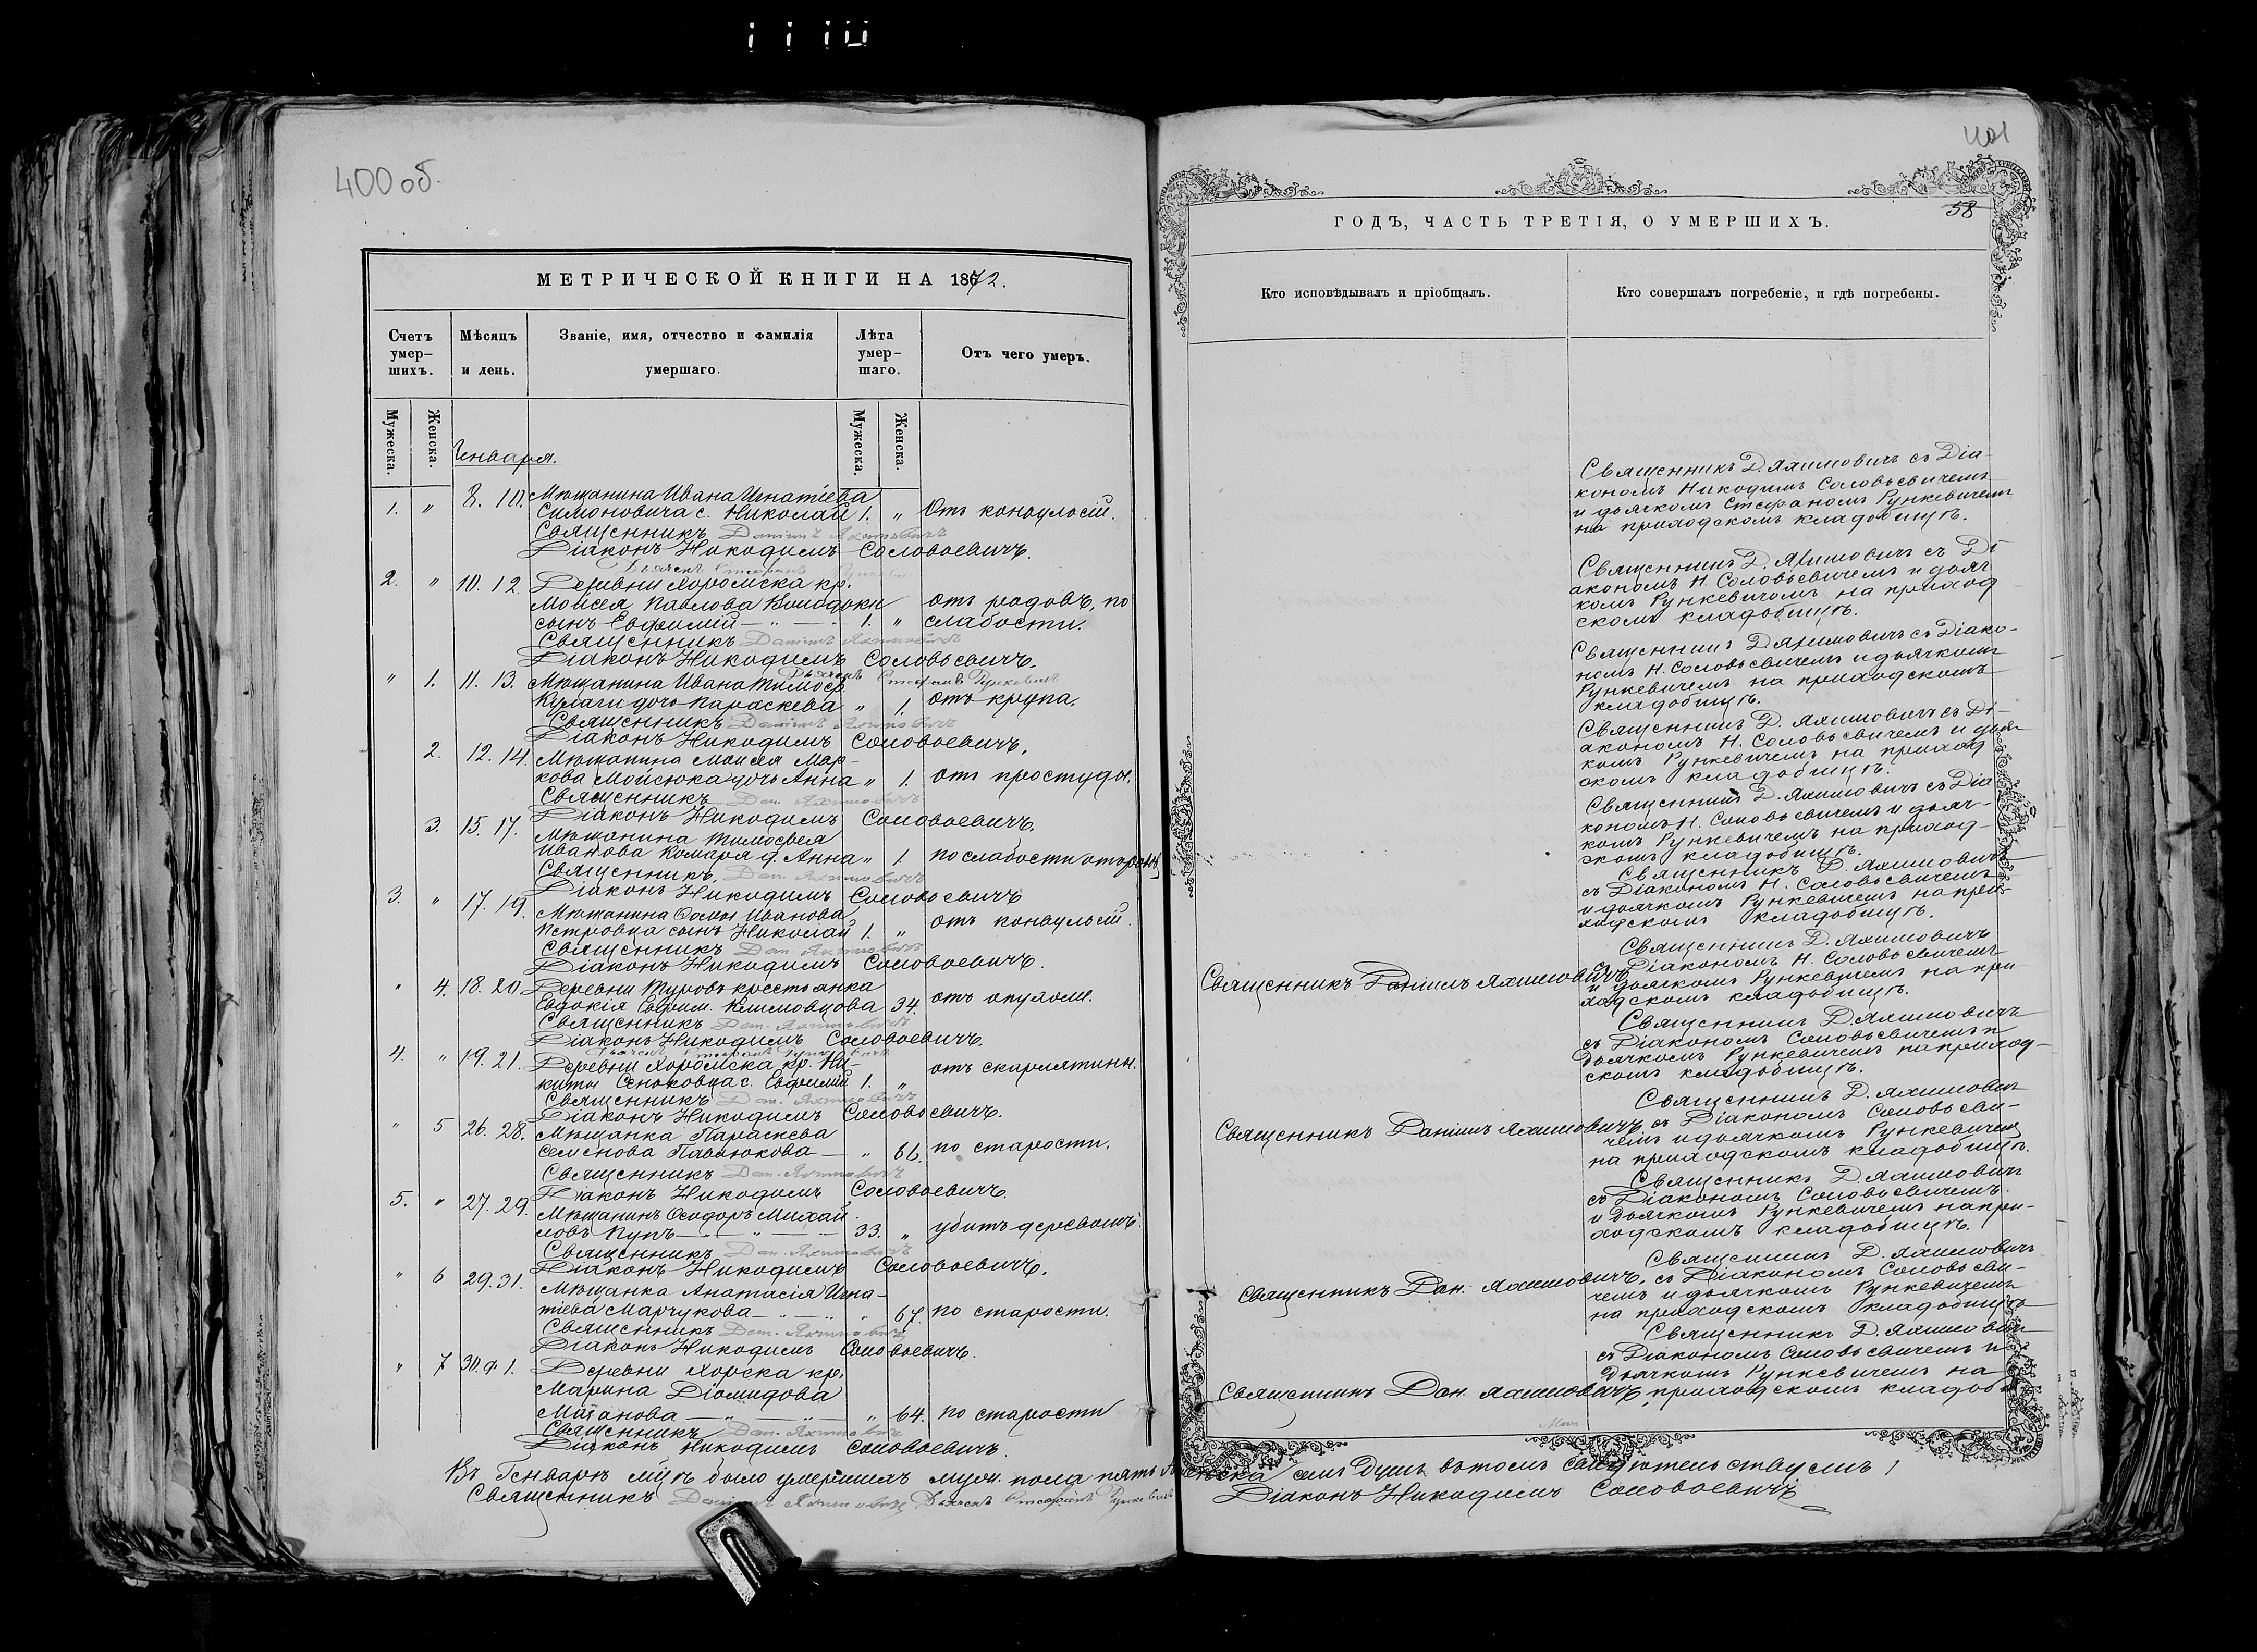 400 об.
МЕТРИЧЕСКОЙ КНИГИ НА 1872.
Счетъ умер-шихъ.
Мѣсяцъ и день.
Званіе, имя, отчество и фамилія умершаго.
Лѣта умер-шаго.
Отъ чего умеръ.
Мужеска.
Женска.
Мужеска.
Женска.
Генваря.
1. " 8. 10. Мѣщанина Ивана Игнатіева
Симоновича с. Николай 1. " Отъ конвульсій.
Священникъ Даніилъ Яхимовичъ
Діаконъ Никодимъ Соловьевичъ.
Дьячекъ Стефанъ
2. " 10. 12. Деревни Хоромска кр.
Моисея Павлова отъ родовъ, по
сынъ Евфимій — " — 1. " слабости.
Священникъ Даніилъ Яхимовичъ
Діаконъ Никодимъ Соловьевичъ.
Дьячекъ Стефанъ Рункевичъ
" 1. 11. 13. Мѣщанина Ивана Тимоф.
Кулаги дочь Параскева " 1. отъ крупа.
Священникъ Даніилъ Яхимовичъ
Діаконъ Никодимъ Соловьевичъ.
2. 12. 14. Мѣщанина Моисея Мар-
кова Мойсюка дочь Анна " 1. отъ простуды.
Священникъ Дан. Яхимовичъ
Діаконъ Никодимъ Соловьевичъ.
3. 15. 17. Мѣщанина Тимофея
Иванова Комара д. Анна " 1. по слабости отъ
Священникъ Дан. Яхимовичъ
Діаконъ Никодимъ Соловьевичъ
3. " 17. 19. Мѣщанина Фомы Иванова
Петровца сынъ Николай 1. " отъ конвульсій.
Священникъ Дан. Яхимовичъ
Діаконъ Никодимъ Соловьевичъ.
" 4. 18. 20. Деревни Туровъ крестьянка
Евдокія Ефрим. Климовцова 34. отъ опухоли.
Священникъ Дан. Яхимовичъ
Діаконъ Никодимъ Соловьевичъ.
Дьячекъ Стефанъ Рункевичъ
4. " 19. 21. Деревни Хоромска кр. Ни-
киты Сеноковца с. Евфимій 1. " отъ скарлятины.
Священникъ Дан. Яхимовичъ
Діаконъ Никодимъ Соловьевичъ.
" 5 26. 28. Мѣщанка Параскева
Семенова Павлюкова — " 66. по старости.
Священникъ Дан. Яхимовичъ
Діаконъ Никодимъ Соловьевичъ.
5. " 27. 29. Мѣщанинъ Ѳеодоръ Михай-
ловъ Пупъ — " — " — 33. " убитъ деревомъ.
Священникъ Дан. Яхимовичъ
Діаконъ Никодимъ Соловьевичъ.
" 6 29. 31. Мѣщанка Анатасія Игна-
тіева Марчукова — " — " " 67. по старости.
Священникъ Дан. Яхимовичъ
Діаконъ Никодимъ Соловьевичъ.
" 7 30. ф. 1. Деревни Хорска кр.
Марина Діомидова
— " — " — " 64. по старости
Священникъ Дан. Яхимовичъ
Діаконъ Никодимъ Соловьевичъ.
Въ Генварѣ мцѣ было умершихъ муж. пола пять женска семь душъ въ томъ свидѣтельствуемъ:
Священникъ Даніилъ Яхимовичъ Дьячекъ Стефанъ Рункевичъ
Діаконъ Никодимъ Соловьевичъ
401
58
ГОДЪ, ЧАСТЬ ТРЕТІЯ, О УМЕРШИХЪ.
Кто исповѣдывалъ и пріобщалъ.
Кто совершалъ погребеніе, и гдѣ погребены.
Священникъ Д. Яхимовичъ съ Діа-
кономъ Никодимъ Соловьевичемъ
и дьячкомъ Стефаномъ Рункевичемъ
на приходскомъ кладбищѣ.
Священникъ Д. Яхимовичъ съ Ді
акономъ Н. Соловьевичемъ и дьяч
комъ Рункевичемъ на приход
скомъ кладбищѣ.
Священникъ Д. Яхимовичъ съ Діако-
номъ Н. Соловьевичемъ и дьячкомъ
Рункевичемъ на приходскомъ
кладбищѣ.
Священникъ Д. Яхимовичъ съ Ді-
акономъ Н. Соловьевичемъ и дьяч-
комъ Рункевичемъ на приход
скомъ кладбищѣ.
Священникъ Д. Яхимовичъ съ Діа
кономъ Н. Соловьевичемъ и дьяч-
комъ Рункевичемъ на приход-
скомъ кладбищѣ.
Священникъ Д. Яхимовичъ
съ Діакономъ Н. Соловьевичемъ
и дьячкомъ Рункевичемъ на при-
ходскомъ кладбищѣ.
Священникъ Даніилъ Яхимовичъ
Священникъ Д. Яхимовичъ
съ Діакономъ Н. Соловьевичемъ
и дьячкомъ Рункевичемъ на при
ходскомъ кладбищѣ.
Священникъ Д. Яхимовичъ
съ Діакономъ Соловьевичемъ и
Дьячкомъ Рункевичемъ на приход-
скомъ кладбищѣ.
Священникъ Даніилъ Яхимовичъ
Священникъ Д. Яхимовичъ
съ Діакономъ Соловьеви-
чемъ и дьячкомъ Рункевичемъ
на приходскомъ кладбищѣ.
Священникъ Д. Яхимовичъ
съ Діакономъ Соловьевичемъ
и Дьячкомъ Рункевичемъ на при-
ходскомъ кладбищѣ.
Священникъ Дан. Яхимовичъ.
Священникъ Д. Яхимовичъ
съ Діакономъ Соловьеви-
чемъ и дьячкомъ Рункевичемъ
на приходскомъ кладбищѣ
Священникъ Дан. Яхимовичъ,
Священникъ Д. Яхимовичъ
съ Діакономъ Соловьевичемъ и
Дьячкомъ Рункевичемъ на
приходскомъ кладб